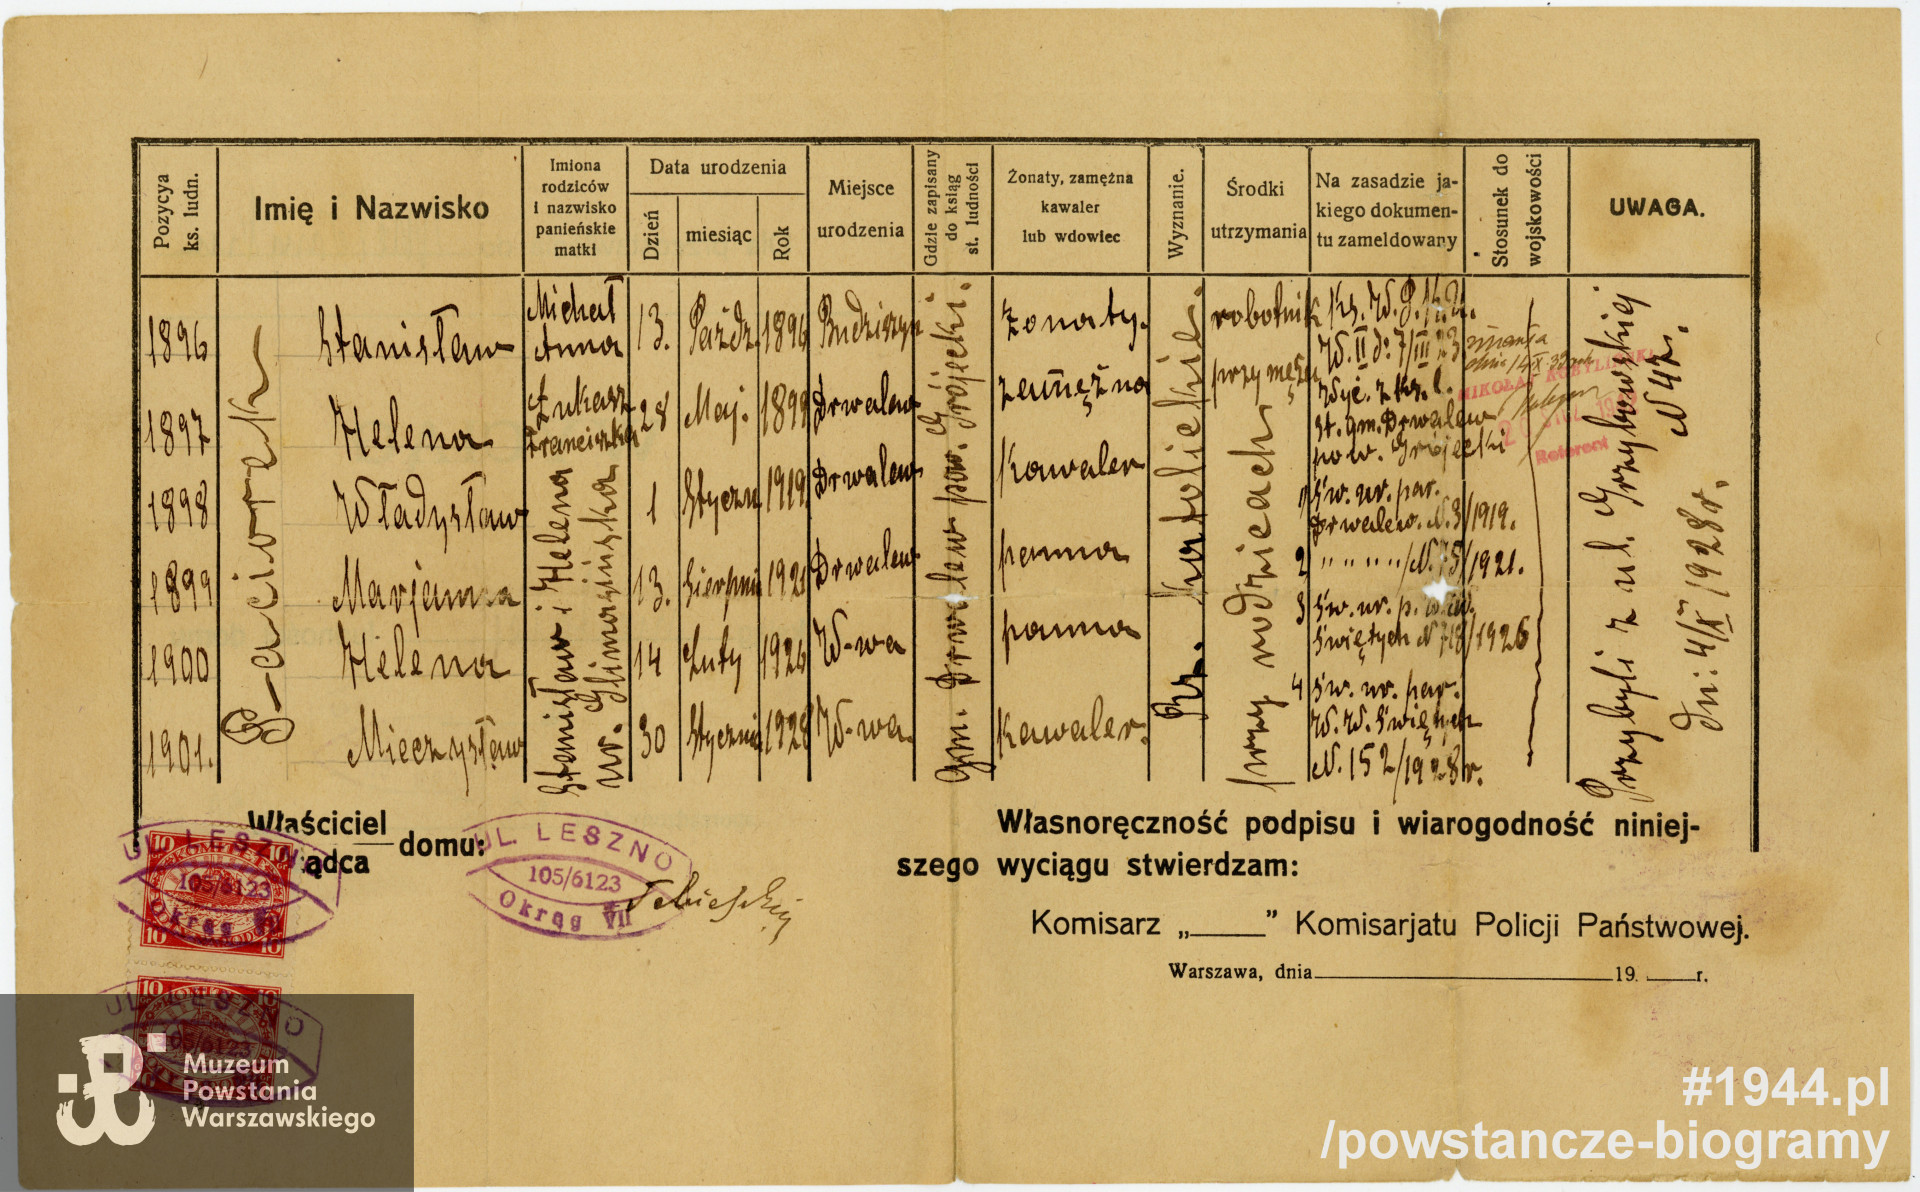 Pozycya
ks. ludn.
Imię i Nazwisko
Imiona
rodziców
i nazwisko
panieńskie
matki
Data urodzenia
Dzień
miesiąc
Rok
Miejsce
urodzenia
Gdzie zapisany
do ksiąg
st. ludności
Żonaty, zamężna
kawaler
lub wdowiec
Wyznanie.
Środki
utrzymania
Na zasadzie ja-
kiego dokumen-
tu zameldowany
Stosunek do
wojskowości
UWAGA.
Paciorek
1896 Stanisław Michał Anna 13. Paźdz. 1896 Budziszyn żonaty. robotnik
1897 Helena Łukasz Franciszka 28 Maj. 1899 Drwalew zamężna przy mężu
1898 Władysław 1 Styczn 1919 Drwalew kawaler
1899 Marjanna 13. Sierpni 1921 Drwalew panna
1900 Helena 14 Luty 1926 W-wa panna
1901. Mieczysław 30 Styczni 1928 W-wa. kawaler.
Stanisław i Helena
ur. Glinosińska
Gm. Drwalew pow. Grójecki.
Rz. Katolickie.
przy rodzicach
Ks. W. P.
W. II d: 7/III 23
Wyc. z ks. l.
st. gm. Drwalew
pow. Grójecki
1 św. ur. par.
Drwalew. N. 3/1919.
2 " " " " " /N. 75/1921.
3 św. ur. p. W.W.
Świętych N 718/1926
4 św. ur. par.
W. W. Świętych
N. 152/1928 r.
MIKOŁAJ KOBYLIŃSKI
Referent
Przybyli z ul. Grzybowskiej
N 47.
dn: 4/X 1928 r.
Właściciel
ądca
domu:
UL. LESZNO
105/6123
Okrąg VII
UL. LESZNO
105/6123
Okrąg
10 KOMITET 10
10 10
UL. LESZNO
105/6123
10 KOMITET 10
Własnoręczność podpisu i wiarogodność niniej-
szego wyciągu stwierdzam:
Komisarz „______” Komisarjatu Policji Państwowej.
Warszawa, dnia______ 19.____r.
Muzeum
Powstania
Warszawskiego
#1944.pl
/powstancze-biogramy